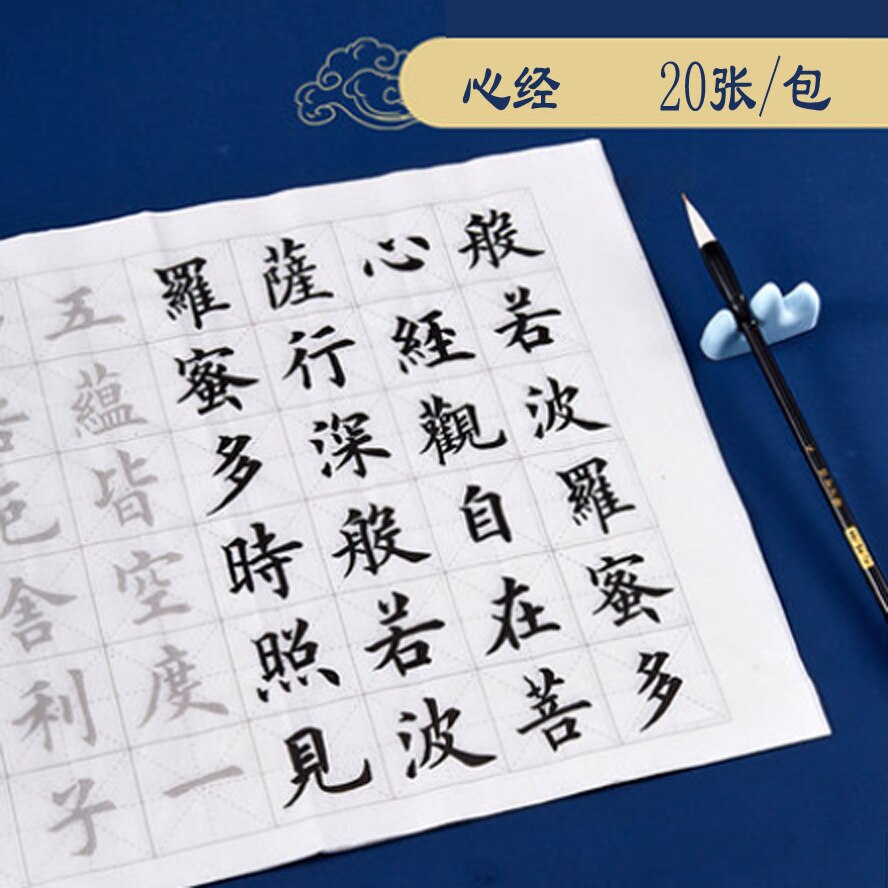 心经 20张/包
般若波羅蜜多
心經觀自在菩
薩行深般若波
羅蜜多時照見
五蘊皆空度一
舍利子